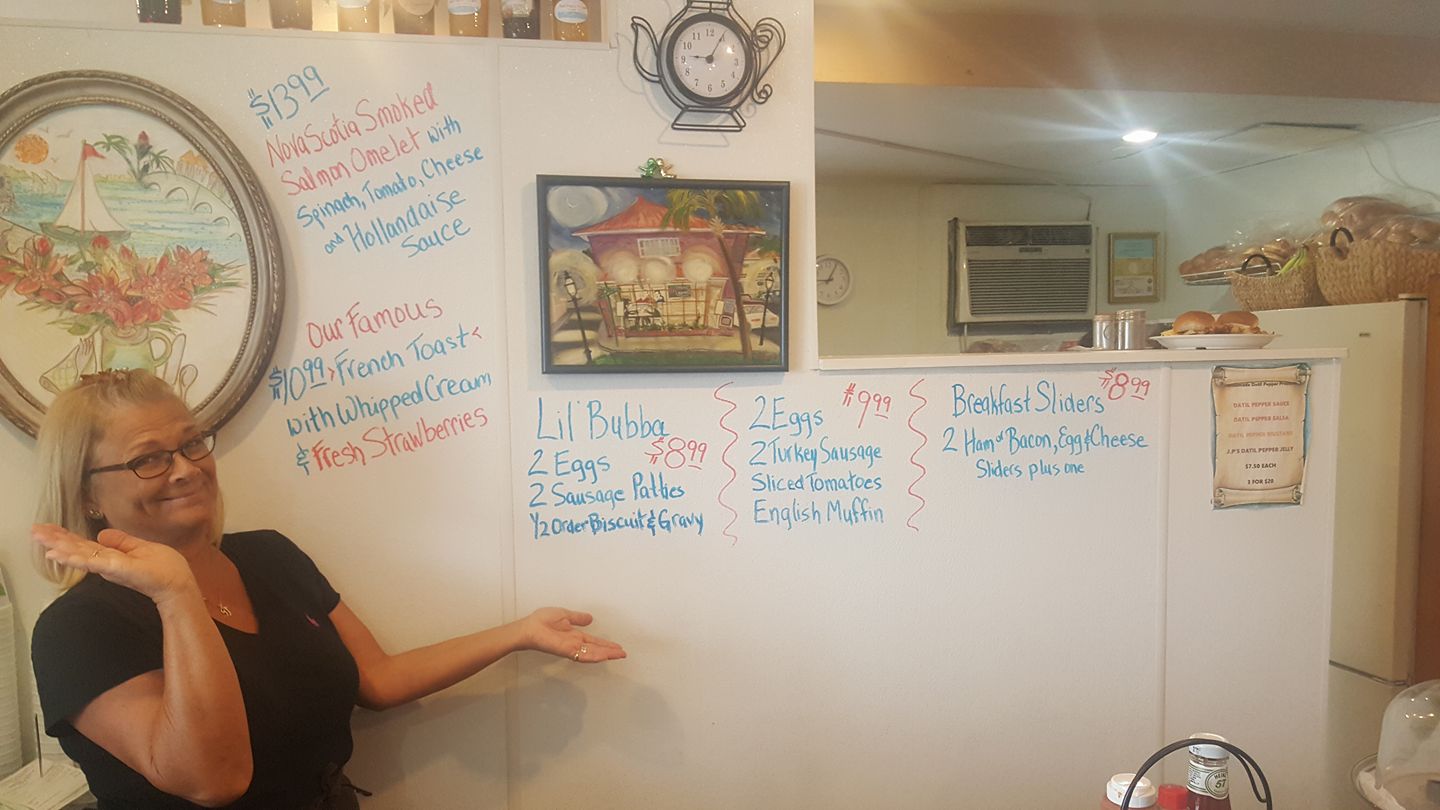 $13.99
Nova Scotia Smoked
Salmon Omelet with
Spinach, Tomato, Cheese
and Hollandaise
Sauce
Our Famous
$10.99 French Toast
with Whipped Cream
& Fresh Strawberries
Lil' Bubba
$8.99
2 Eggs
2 Sausage Patties
1/2 Order Biscuit & Gravy
2 Eggs $9.99
2 Turkey Sausage
Sliced Tomatoes
English Muffin
Breakfast Sliders $8.99
2 Ham or Bacon, Egg & Cheese
Sliders plus one
Datil Pepper
DATIL PEPPER SAUCE
DATIL PEPPER SALSA
DATIL PEPPER MUSTARD
J.P'S DATIL PEPPER JELLY
$7.50 EACH
3 FOR $20
12
1
2
3
4
5
6
7
8
9
10
11
HEINZ
57